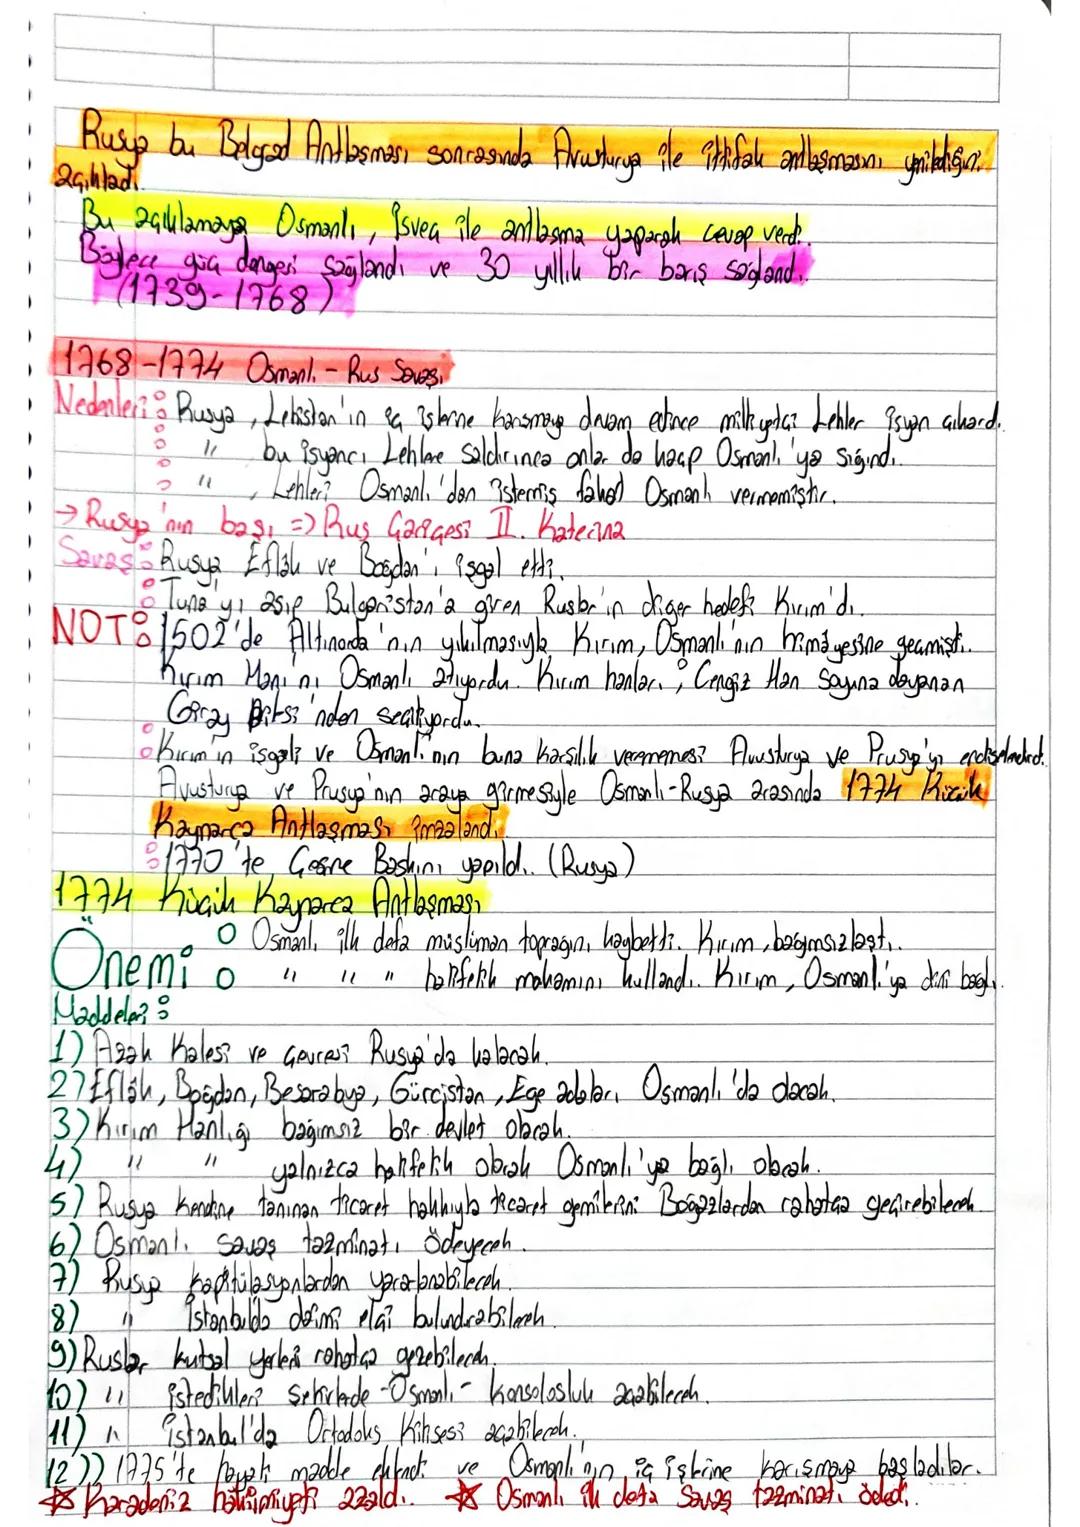 Rusya bu Belgrad Antlaşması sonrasında Avusturya ile ittifak antlaşmasını yenilediğini
açıkladı.
Bu açıklamaya Osmanlı, İsveç ile antlaşma yaparak cevap verdi.
Böylece güç dengesi sağlandı ve 30 yıllık bir barış sağlandı.
(1739-1768)
1768-1774 Osmanlı - Rus Savaşı
Nedenleri: Rusya, Lehistan'ın iç işlerine karışmaya devam edince milliyetçi Lehler isyan çıkardı.
" bu isyancı Lehlere saldırınca onlar da kaçıp Osmanlı'ya sığındı.
" , Lehleri Osmanlı'dan istemiş fakat Osmanlı vermemiştir.
→ Rusya'nın başı => Rus Çariçesi II. Katerina
Savaş: Rusya Eflâk ve Boğdan'ı işgal etti.
Tuna'yı aşıp Bulgaristan'a giren Ruslar'ın diğer hedefi Kırım'dı.
NOT: 1502'de Altınorda'nın yıkılmasıyla Kırım, Osmanlı'nın himâyesine geçmişti.
Kırım Hanı'nı Osmanlı atıyordu. Kırım hanları; Cengiz Han Soyuna dayanan
Giray Ailesi'nden seçiliyordu.
Kırım'ın işgali ve Osmanlı'nın buna karşılık verememesi Avusturya ve Prusya'yı endişelendirdi.
Avusturya ve Prusya'nın araya girmesiyle Osmanlı-Rusya arasında 1774 Küçük
Kaynarca Antlaşması imzalandı.
1770'te Çeşme Baskını yapıldı. (Rusya)
1774 Küçük Kaynarca Antlaşması
Önemi: Osmanlı ilk defa müslüman toprağını kaybetti. Kırım, bağımsızlaştı.
" " " halifelik makamını kullandı. Kırım, Osmanlı'ya dini bağlı.
Maddeleri:
1) Azak Kalesi ve çevresi Rusya'da kalacak.
2) Eflâk, Boğdan, Besarabya, Gürcistan, Ege adaları Osmanlı'da olacak.
3) Kırım Hanlığı bağımsız bir devlet olacak.
4) " " yalnızca halifelik olarak Osmanlı'ya bağlı olacak.
5) Rusya Kendine tanınan ticaret hakkıyla ticaret gemilerini Boğazlardan rahatça geçirebilecek.
6) Osmanlı savaş tazminatı ödeyecek.
7) Rusya kapitülasyonlardan yararlanabilecek.
8) " İstanbulda daimi elçi bulundurabilecek.
9) Ruslar kutsal yerleri rahatça gezebilecek.
10) " istedikleri şehirlerde -Osmanlı- konsolosluk açabilecek.
11) " İstanbul'da Ortodoks Kilisesi açabilecek.
12)) 1775'te madde eklendi ve Osmanlı'nın iç işlerine karışmaya başladılar.
☆ Karadeniz hakimiyeti azaldı. ☆ Osmanlı ilk defa Savaş tazminatı ödedi.